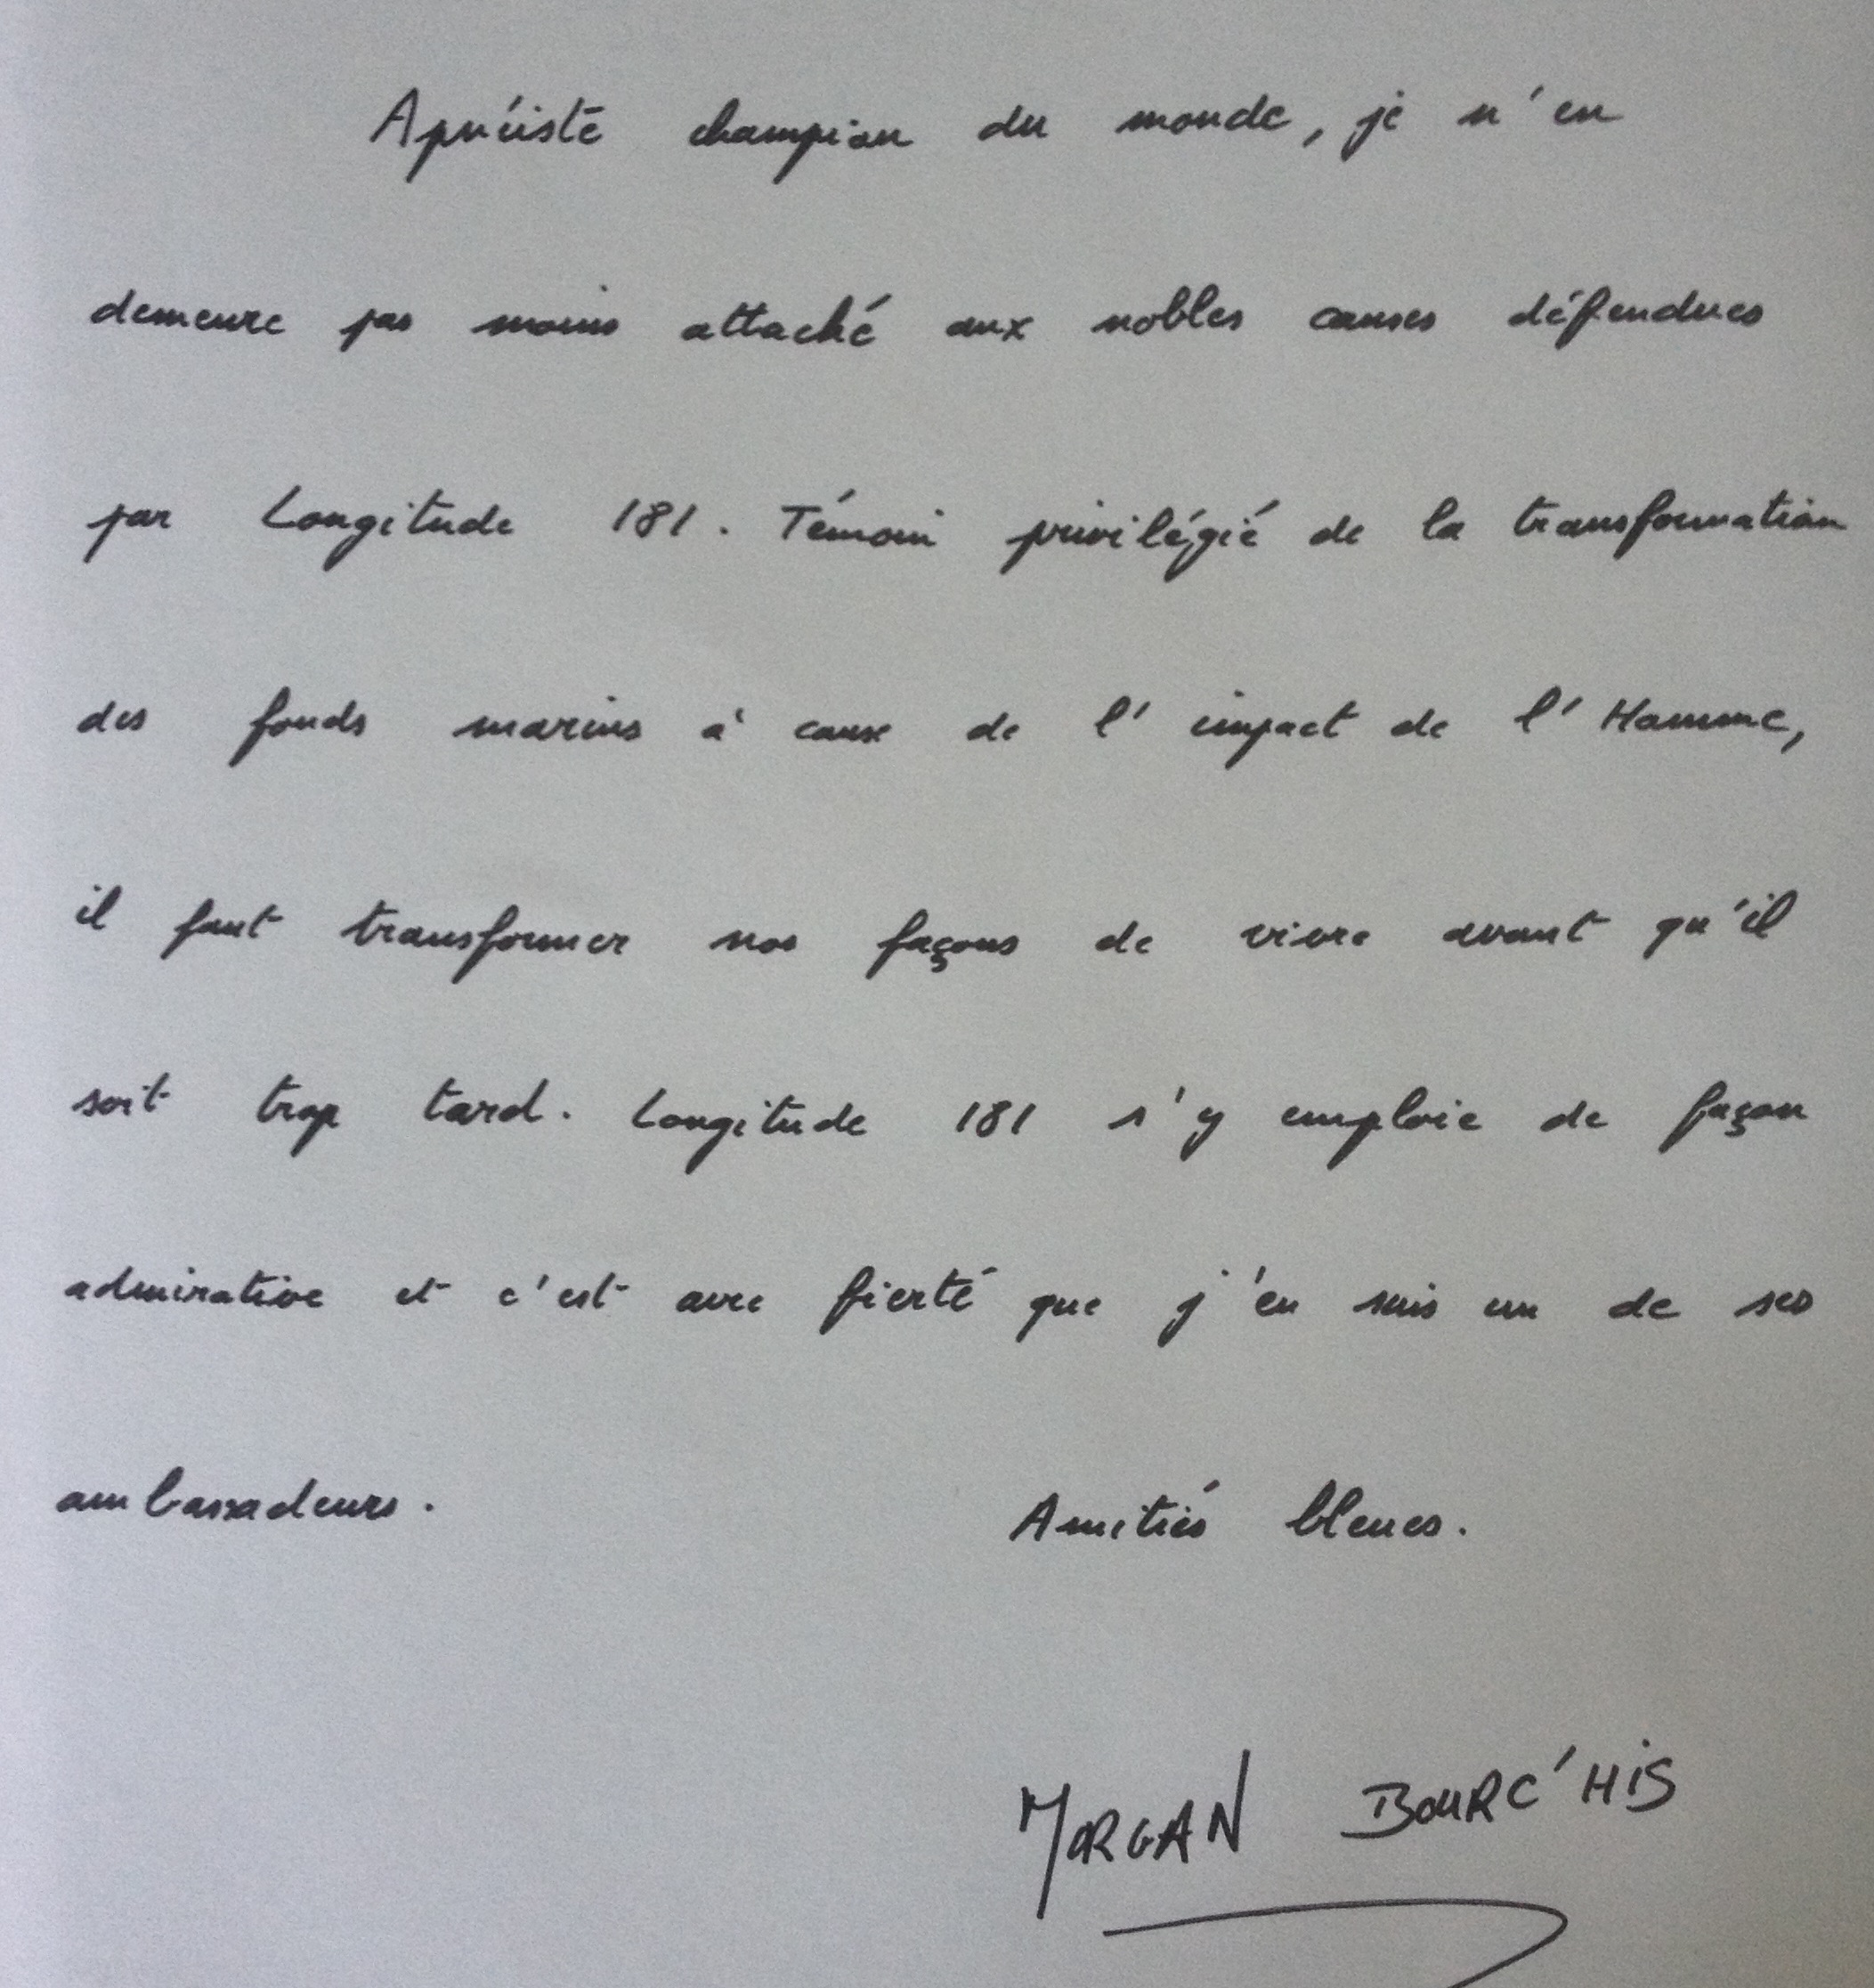 Apnéiste champion du monde, je n'en
demeure pas moins attaché aux nobles causes défendues
par Longitude 181. Témoin privilégié de la transformation
des fonds marins à cause de l'impact de l'Homme,
il faut transformer nos façons de vivre avant qu'il
soit trop tard. Longitude 181 s'y emploie de façon
admirative et c'est avec fierté que j'en suis un de ses
ambassadeurs. Amitiés bleues.
MORGAN BOURC'HIS